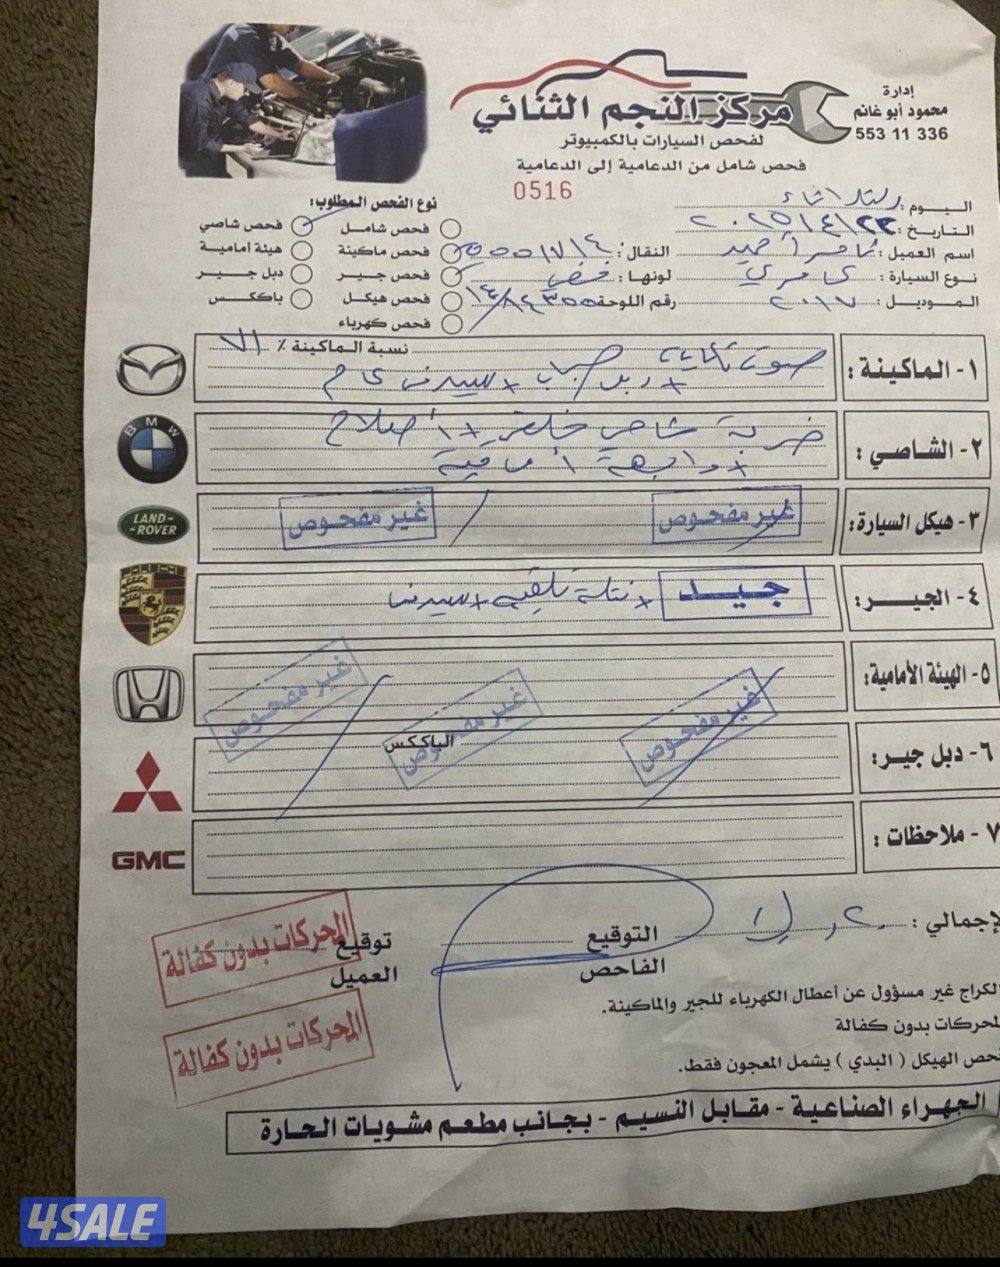 إدارة
محمود أبو غانم
553 11 336
مركز النجم الثنائي
لفحص السيارات بالكمبيوتر
فحص شامل من الدعامية إلى الدعامية
0516
اليوم : الثلاثاء
التاريخ : ٢٠٢٥/٤/٢٢
اسم العميل :
النقال :
نوع السيارة : كامري
لونها : فضي
الموديل : ٢٠١٧
رقم اللوحة
نوع الفحص المطلوب:
فحص شامل
فحص شاصي
فحص ماكينة
هيئة أمامية
فحص جير
دبل جير
فحص هيكل
باككس
فحص كهرباء
١- الماكينة :
نسبة الماكينة % ٧١
صوت
٢- الشاصي :
ضربة شاصي خلفي + أصلاح
+ واجهة أمامية
٣- هيكل السيارة :
غير مفحوص
غير مفحوص
٤- الجير :
جيد
+ نتلة
٥- الهيئة الأمامية:
غير مفحوص
غير مفحوص
غير مفحوص
٦- دبل جير:
الباككس
٧- ملاحظات :
BMW
LAND-ROVER
PORSCHE
GMC
الإجمالي :
التوقيع
الفاحص
توقيع
العميل
المحركات بدون كفالة
المحركات بدون كفالة
الكراج غير مسؤول عن أعطال الكهرباء للجير والماكينة.
المحركات بدون كفالة
فحص الهيكل ( البدي ) يشمل المعجون فقط.
الجهراء الصناعية - مقابل النسيم - بجانب مطعم مشويات الحارة
4SALE